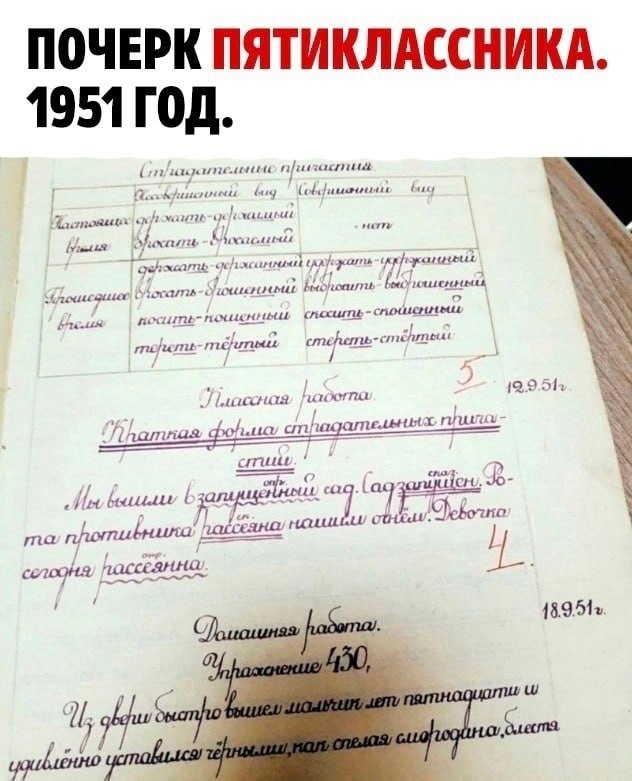 ПОЧЕРК ПЯТИКЛАССНИКА.
1951 ГОД.
Страдательные причастия
Несовершенный вид Совершенный вид
Настоящее время держать-держимый - нет
бросать-бросаемый
Прошедшее время держать-держанный удержать-удержанный
бросать-брошенный выбросить-выброшенный
косить-кошенный скосить-скошенный
тереть-тёртый стереть-стёртый
5
Классная работа 12.9.51г.
Краткая форма страдательных прича-
стий.
опр. сказ.
Мы вышли в запущенный сад. Сад запущен. Ро-
ск.
та противника рассеяна нашим огнём. Девочка
опр.
сегодня рассеянна.
4
Домашняя работа. 18.9.51г.
Упражнение 430,
Из двери быстро вышел мальчик лет пятнадцати и
удивлённо уставился чёрными, как спелая смородина, блестя